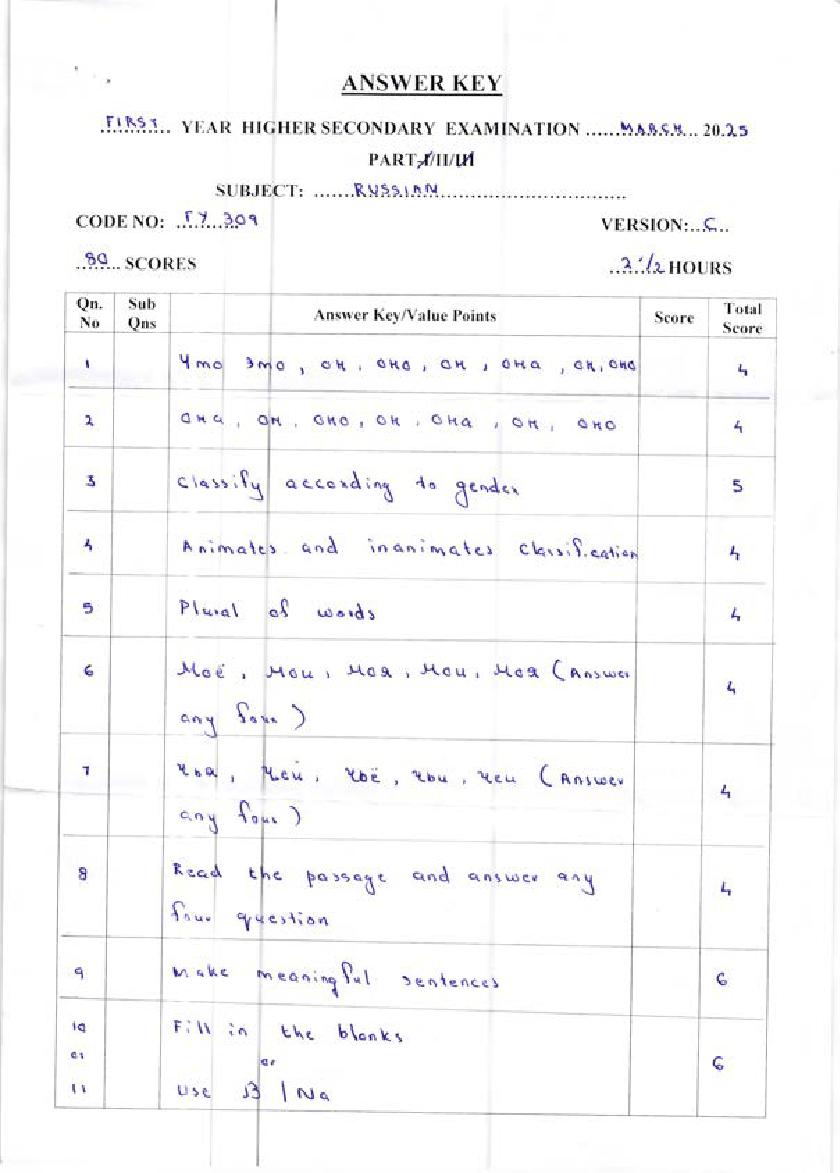 ANSWER KEY
FIRST YEAR HIGHER SECONDARY EXAMINATION ......MARCH... 20.25
PART I/II/III
SUBJECT: .......RUSSIAN.................................
CODE NO: FY 309 VERSION:..C..
80 SCORES 2 1/2 HOURS
Qn. No Sub Qns Answer Key/Value Points Score Total Score
1 Что это, он, оно, он, она, он, оно 4
2 она, он, оно, он, она, он, оно 4
3 Classify according to gender 5
4 Animates and inanimates classification 4
5 Plural of words 4
6 Моё, мои, моя, мои, моя (Answer
any four) 4
7 чья, чей, чьё, чьи, чей (Answer
any four) 4
8 Read the passage and answer any
four question 4
9 Make meaningful sentences 6
10 Fill in the blanks
or or 6
11 Use В / На